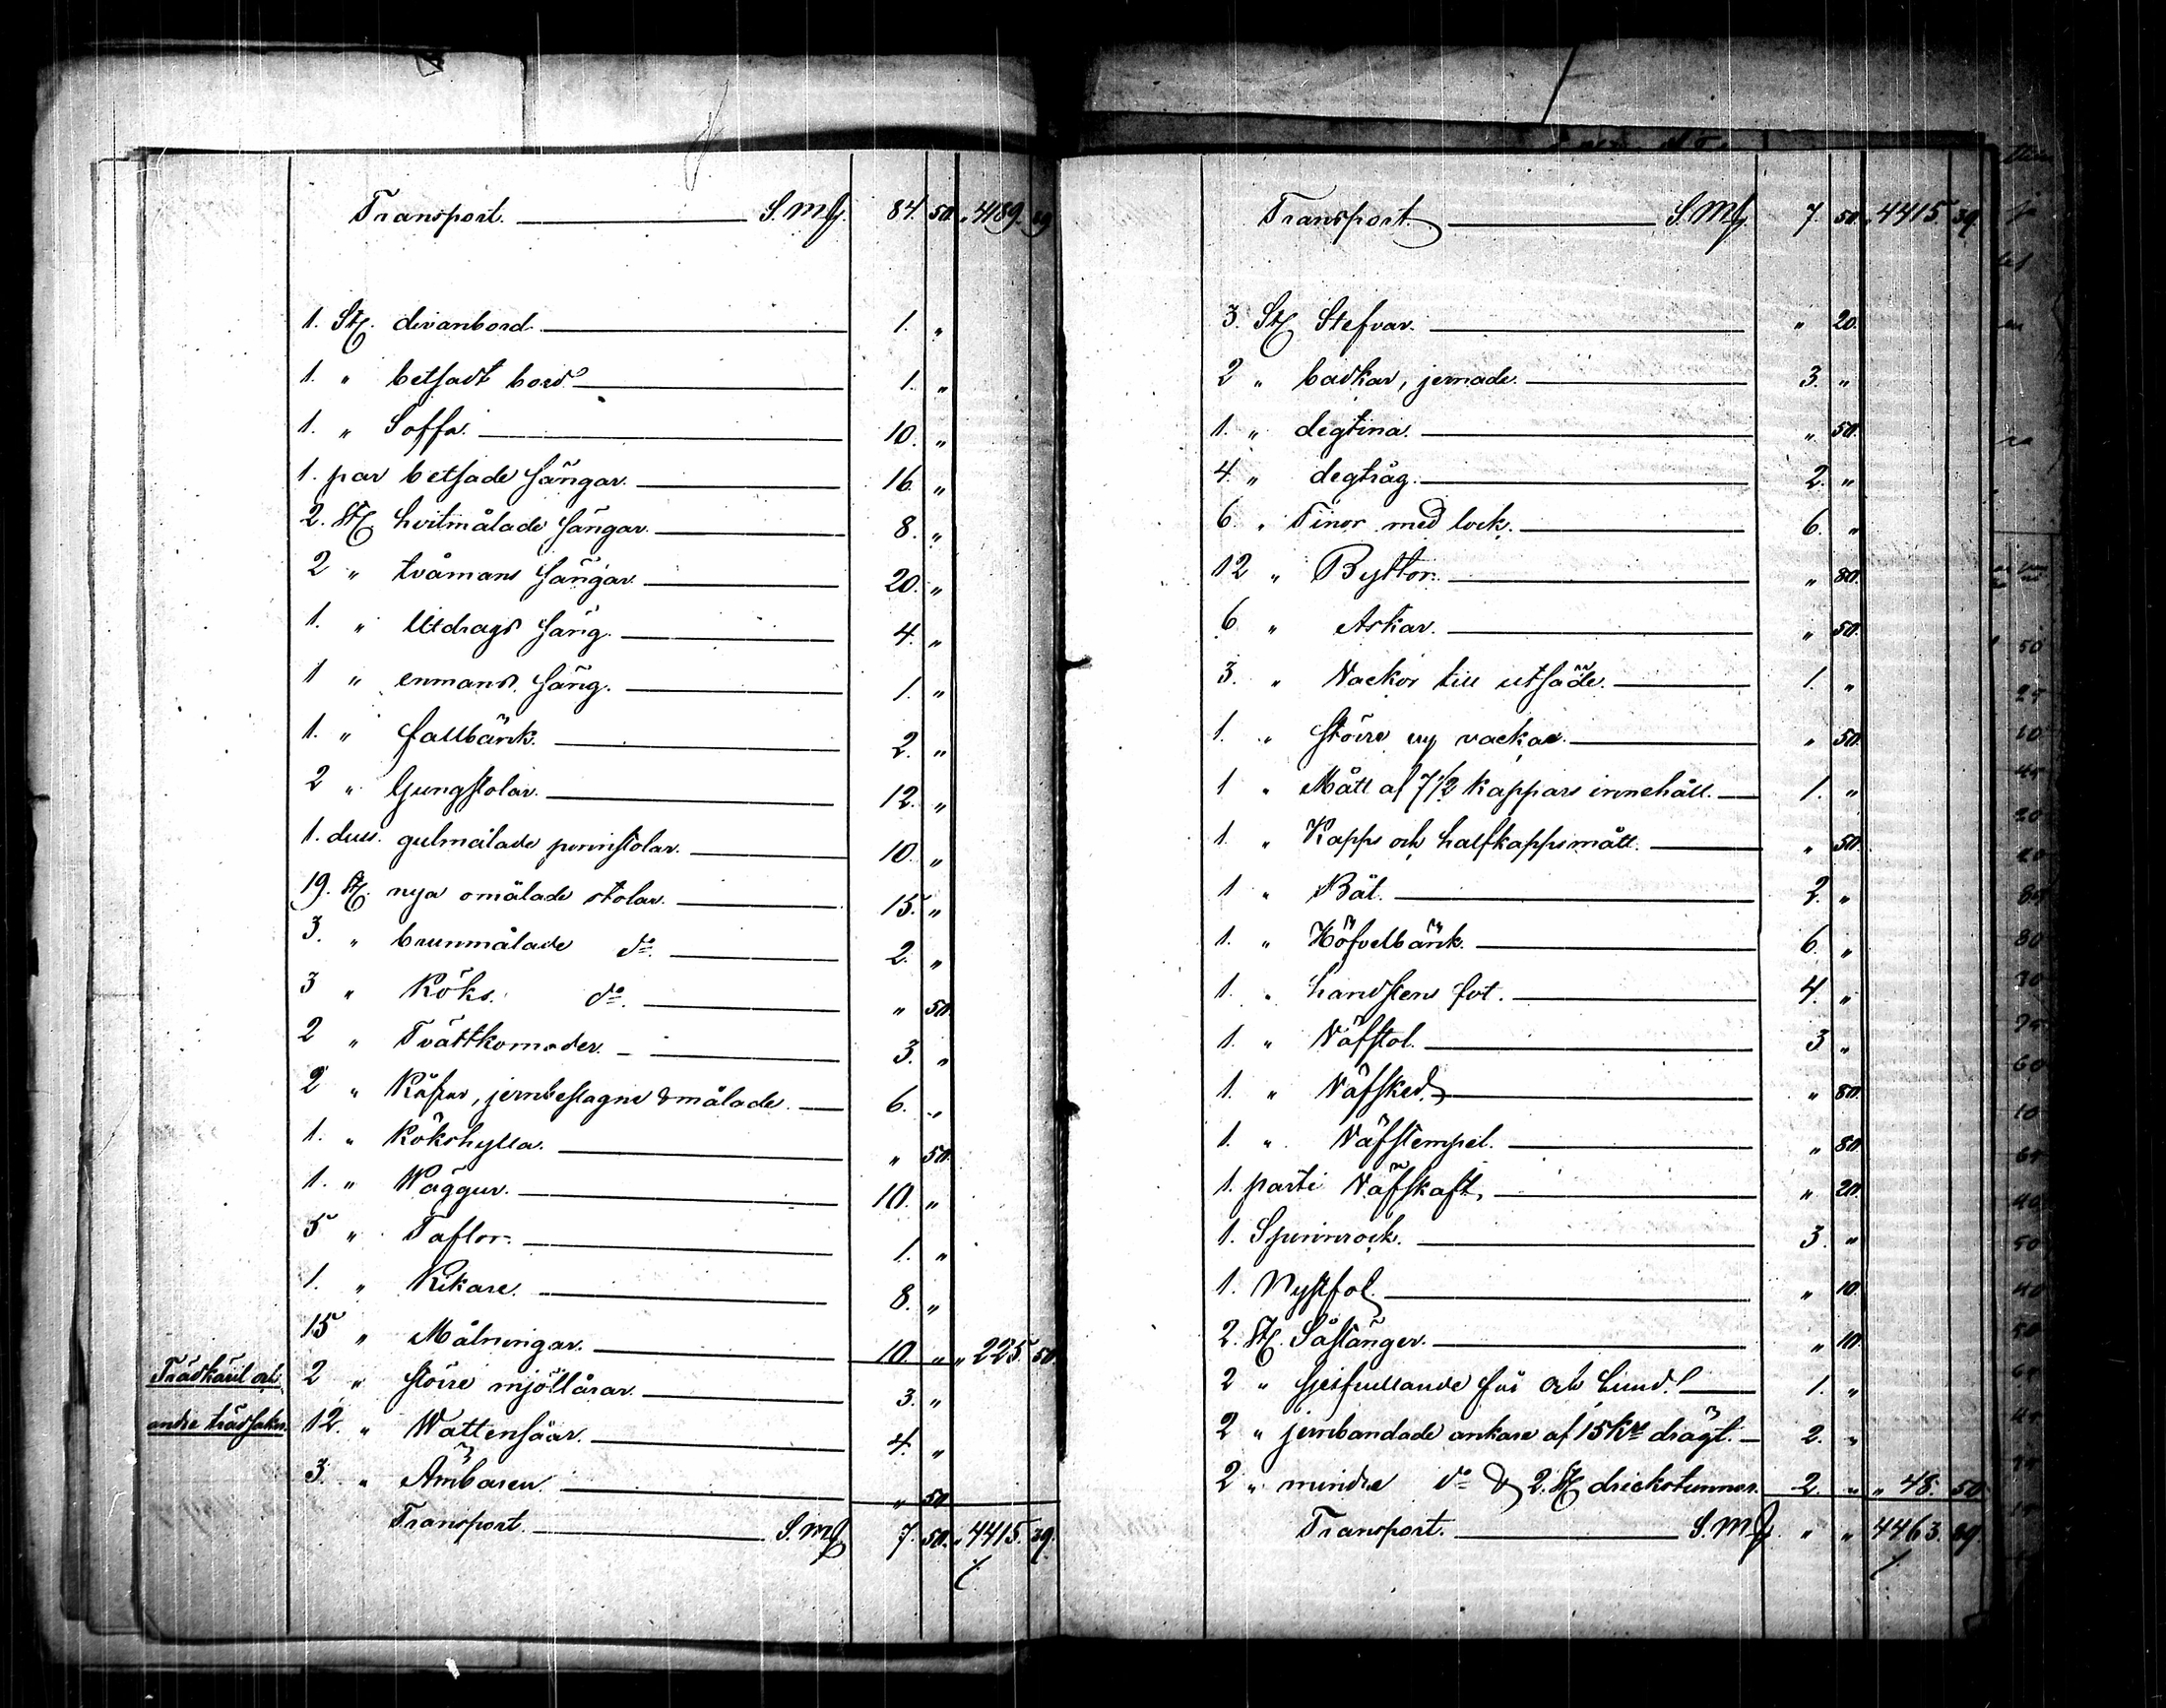 Transport. S.mf. 84. 50. 4189. 89
1. St. divanbord. 1. "
1. " betsadt bord. 1. "
1. " Soffa. 10. "
1. par betsade sängar. 16. "
2. St. hvitmålade sängar. 8. "
2 " tvåmans sängar. 20. "
1. " Utdrags säng. 4. "
1 " enmans säng. 1. "
1. " fallbänk. 2. "
2 " Gungstolar. 12. "
1. duss. gulmålade pinnstolar. 10. "
19. St. nya omålade stolar. 15. "
3. " brunmålade do. 2. "
3 " Köks. do. " 50.
2 " Tvättkomoder. 3. "
2 " Kistor, jernbeslagne & målade. 6. "
1. " Kökshylla. " 50.
1. " Väggur. 10. "
5 " Taflor. 1. "
1. " Kikare. 8. "
15 " Målningar. 10. " " 225. 50.
Trädkäril och
2 " störe mjöllårar. 3. "
andre trädsaker.
12. " Wattensåar. 4. "
3. " Ämbaren. " 50
Transport. S.mf 7. 50. 4415. 39.
Transport. S.Mf. 7. 50. 4415. 39.
3. St. Stefvar. " 20.
2 " badkar, jernade. 3. "
1. " degtina. " 50.
4. " degtråg. 2. "
6. " Tinor med lock. 6. "
12 " Byttor. " 80.
6 " Askar. " 50.
3. " Vackor till utsäde. 1. "
1. " störe ny vacka. " 50
1 " Mått af 7 1/2 kappars innehåll. 1. "
1. " Kapps och halfkappsmått. " 50
1 " Båt. 2. "
1. " Höfvelbänk. 6. "
1. " handstens fot. 4. "
1. " Väfstol. 3 "
1. " Väfsked. " 80.
1. " Väfstempel. " 80
1. parti Väfskaft, " 20
1. Spinnrock. 3. "
1. Nystfot. " 10.
2. St. Såstänger. " 10.
2 " för och hund. 1. "
2 " jernbandade ankare af 15 kr drägt. 2. "
2 " mindre do & 2. St. drickstunnor. 2. " " 48. 50
Transport. S.Mf. " " 4463. 89.